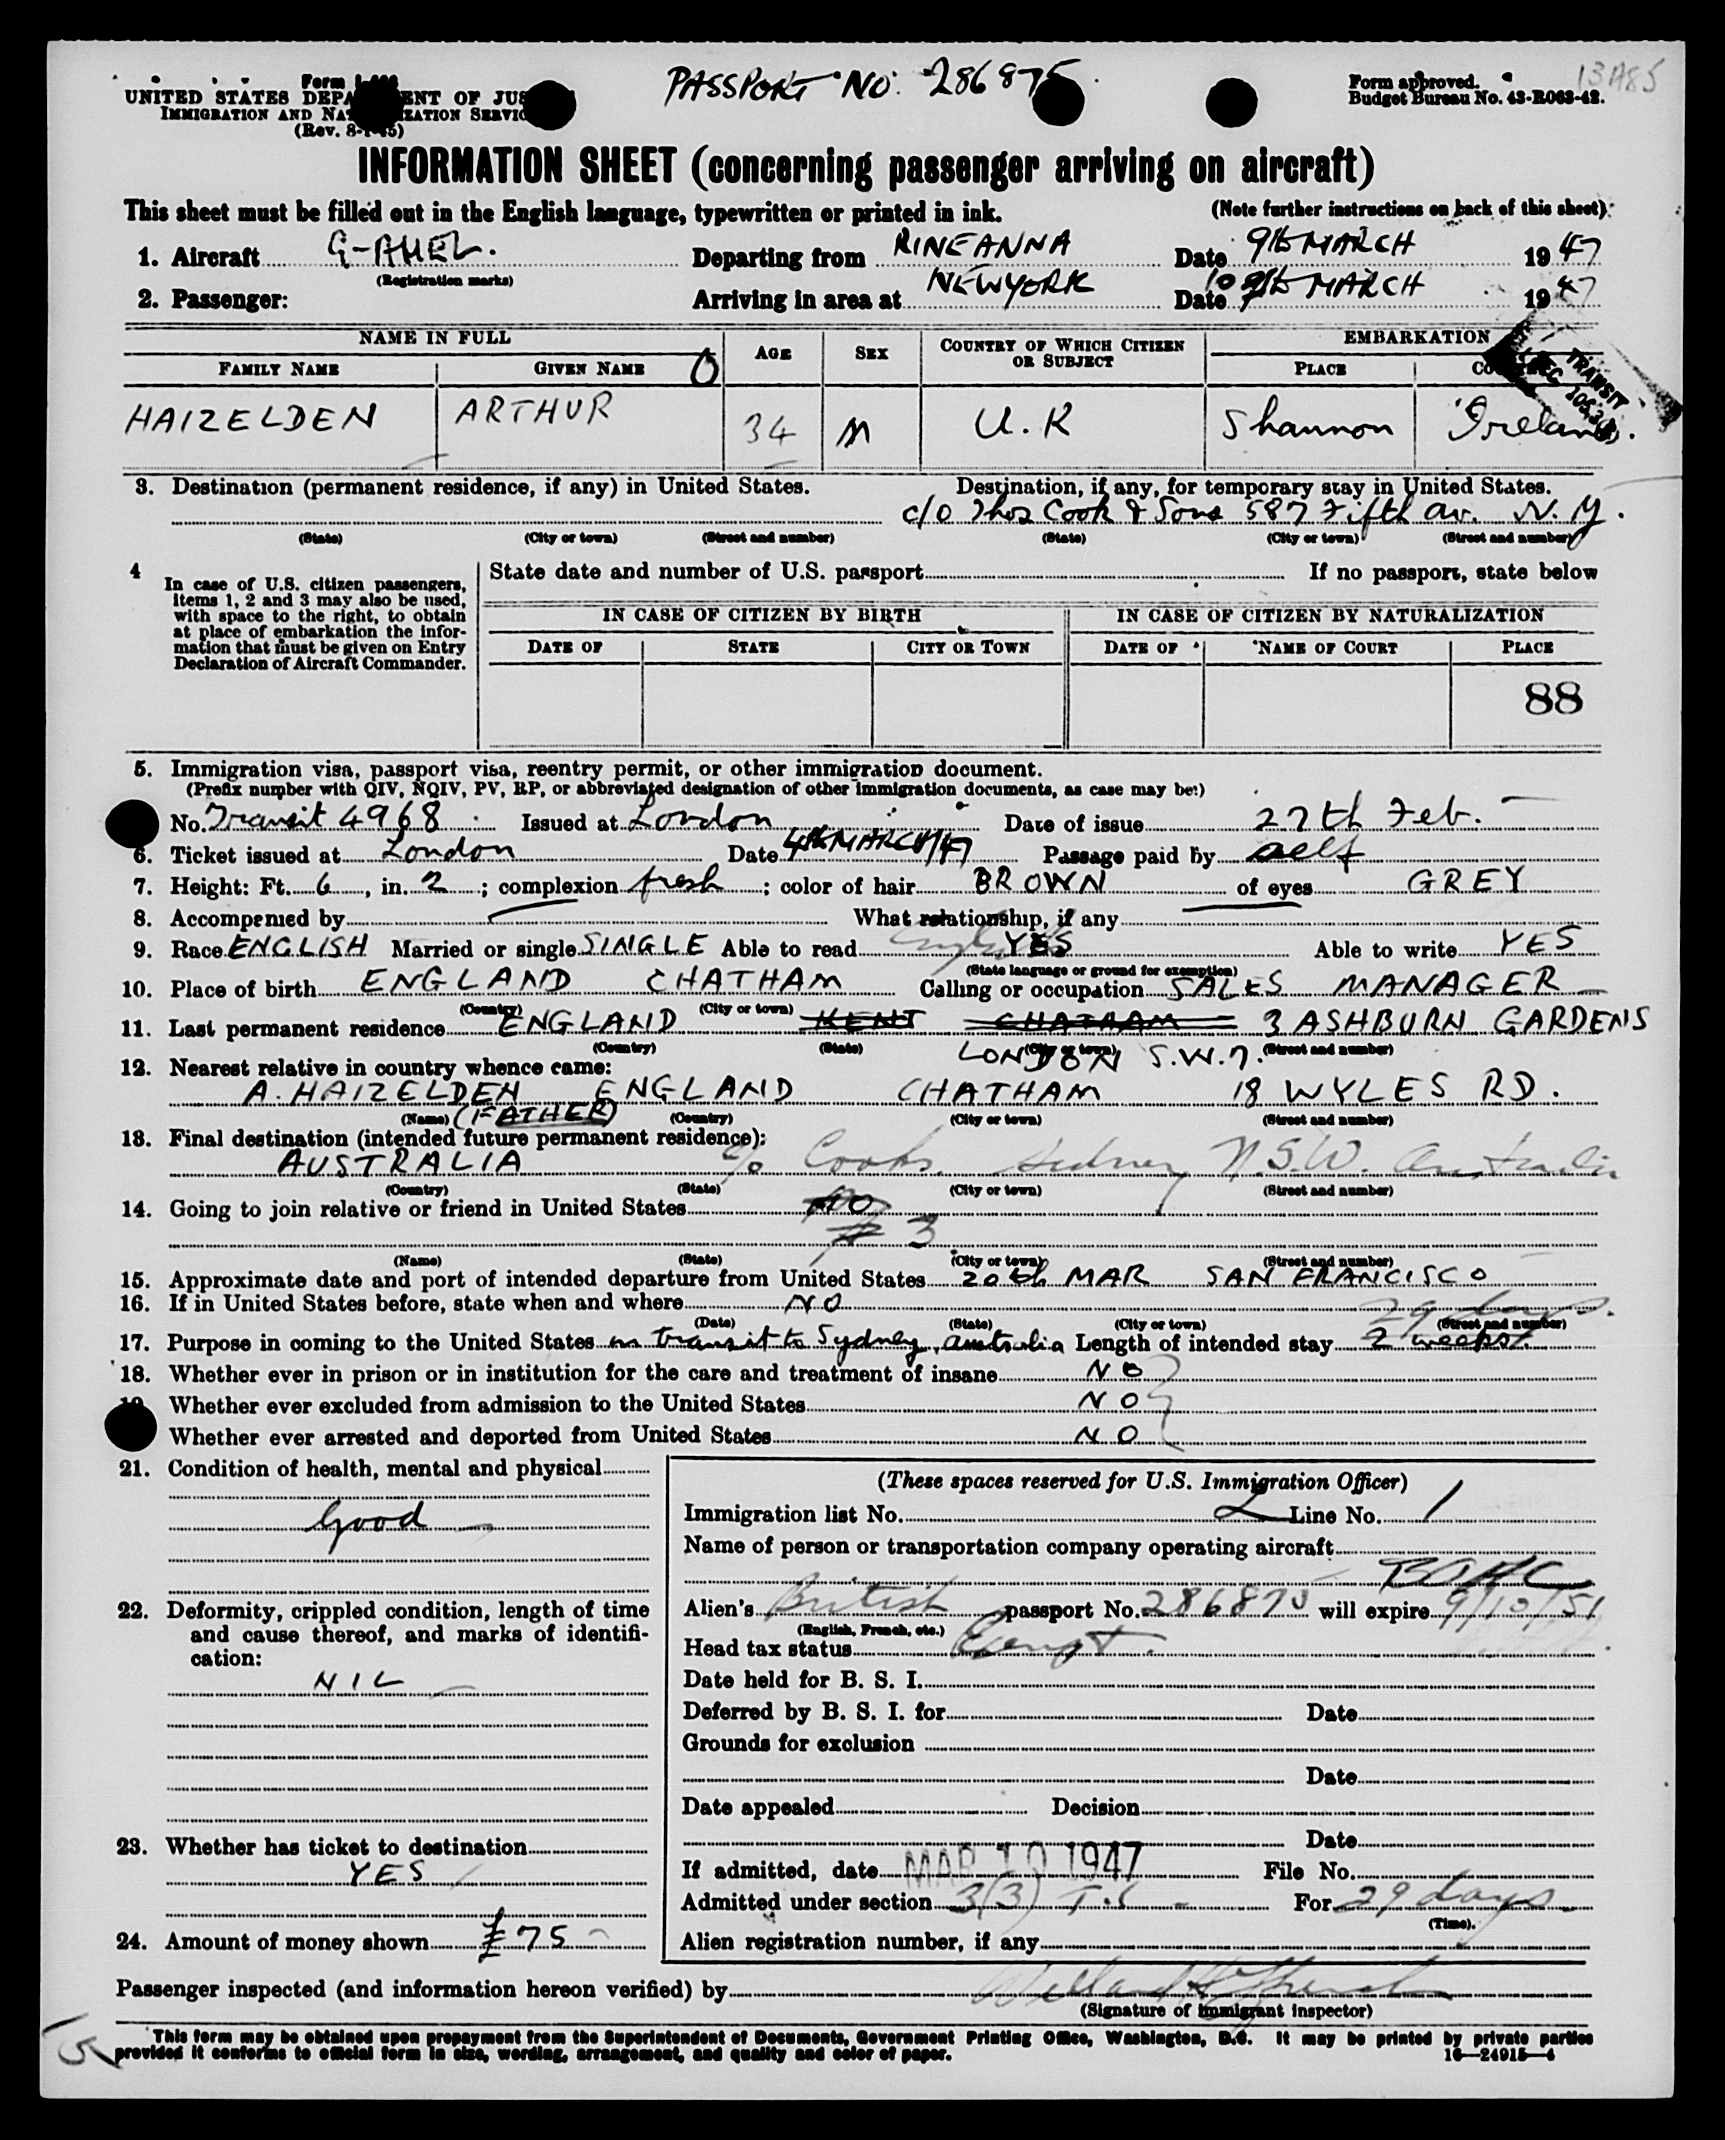 PASSPORT NO. 286875
13A85
Form
UNITED STATES DEPA ENT OF JUS
IMMIGRATION AND NA IZATION SERVIC
(Rev. 8-1-45)
Form approved.
Budget Bureau No. 43-R063-42.
INFORMATION SHEET (concerning passenger arriving on aircraft)
This sheet must be filled out in the English language, typewritten or printed in ink. (Note further instructions on back of this sheet)
1. Aircraft G-AHEL. Departing from RINEANNA Date 9th MARCH 1947
(Registration marks)
2. Passenger: Arriving in area at NEW YORK Date 10 9th MARCH 1947
NAME IN FULL AGE SEX COUNTRY OF WHICH CITIZEN OR SUBJECT EMBARKATION
FAMILY NAME GIVEN NAME O PLACE
TRANSIT
HAIZELDEN ARTHUR 34 M U.K Shannon Ireland.
3. Destination (permanent residence, if any) in United States. Destination, if any, for temporary stay in United States.
c/o Thos Cook & Sons 587 Fifth av. N.Y.
(State) (City or town) (Street and number) (State) (City or town) (Street and number)
4 In case of U.S. citizen passengers, items 1, 2 and 3 may also be used, with space to the right, to obtain at place of embarkation the information that must be given on Entry Declaration of Aircraft Commander.
State date and number of U.S. passport If no passport, state below
IN CASE OF CITIZEN BY BIRTH IN CASE OF CITIZEN BY NATURALIZATION
DATE OF STATE CITY OR TOWN DATE OF NAME OF COURT PLACE
88
5. Immigration visa, passport visa, reentry permit, or other immigration document.
(Prefix number with QIV, NQIV, PV, RP, or abbreviated designation of other immigration documents, as case may be:)
No. Transit 4968 Issued at London Date of issue 27th Feb.
6. Ticket issued at London Date 4th MARCH/47 Passage paid by self
7. Height: Ft. 6, in. 2; complexion fresh; color of hair BROWN of eyes GREY
8. Accompanied by What relationship, if any
9. Race ENGLISH Married or single SINGLE Able to read English YES Able to write YES
(State language or ground for exemption)
10. Place of birth ENGLAND CHATHAM Calling or occupation SALES MANAGER
(Country) (City or town)
11. Last permanent residence ENGLAND KENT CHATHAM 3 ASHBURN GARDENS
(Country) (State) (City or town) (Street and number)
LONDON S.W.7.
12. Nearest relative in country whence came:
A. HAIZELDEN ENGLAND CHATHAM 18 WYLES RD.
(Name) (FATHER) (Country) (City or town) (Street and number)
13. Final destination (intended future permanent residence):
AUSTRALIA c/o Cooks. Sidney N.S.W. Australia
(Country) (State) (City or town) (Street and number)
14. Going to join relative or friend in United States NO
# 3
(Name) (State) (City or town) (Street and number)
15. Approximate date and port of intended departure from United States 20th MAR SAN FRANCISCO
16. If in United States before, state when and where NO
29 days.
(Date) (State) (City or town) (Street and number)
17. Purpose in coming to the United States in transit to Sydney, Australia Length of intended stay 2 weeks.
18. Whether ever in prison or in institution for the care and treatment of insane NO
19. Whether ever excluded from admission to the United States NO
Whether ever arrested and deported from United States NO
21. Condition of health, mental and physical
Good
22. Deformity, crippled condition, length of time and cause thereof, and marks of identification:
NIL
23. Whether has ticket to destination
YES
24. Amount of money shown £75
(These spaces reserved for U.S. Immigration Officer)
Immigration list No. 2 Line No. 1
Name of person or transportation company operating aircraft
BOAC
Alien's British passport No. 286875 will expire 9/10/51
(English, French, etc.)
Head tax status Exempt.
Date held for B. S. I.
Deferred by B. S. I. for Date
Grounds for exclusion
Date
Date appealed Decision
Date
If admitted, date MAR 10 1947 File No.
Admitted under section 3(3) For 29 days
(Time).
Alien registration number, if any
Passenger inspected (and information hereon verified) by
(Signature of immigrant inspector)
This form may be obtained upon prepayment from the Superintendent of Documents, Government Printing Office, Washington, D.C. It may be printed by private parties
provided it conforms to official form in size, wording, arrangement, and quality and color of paper. 16—24915-4